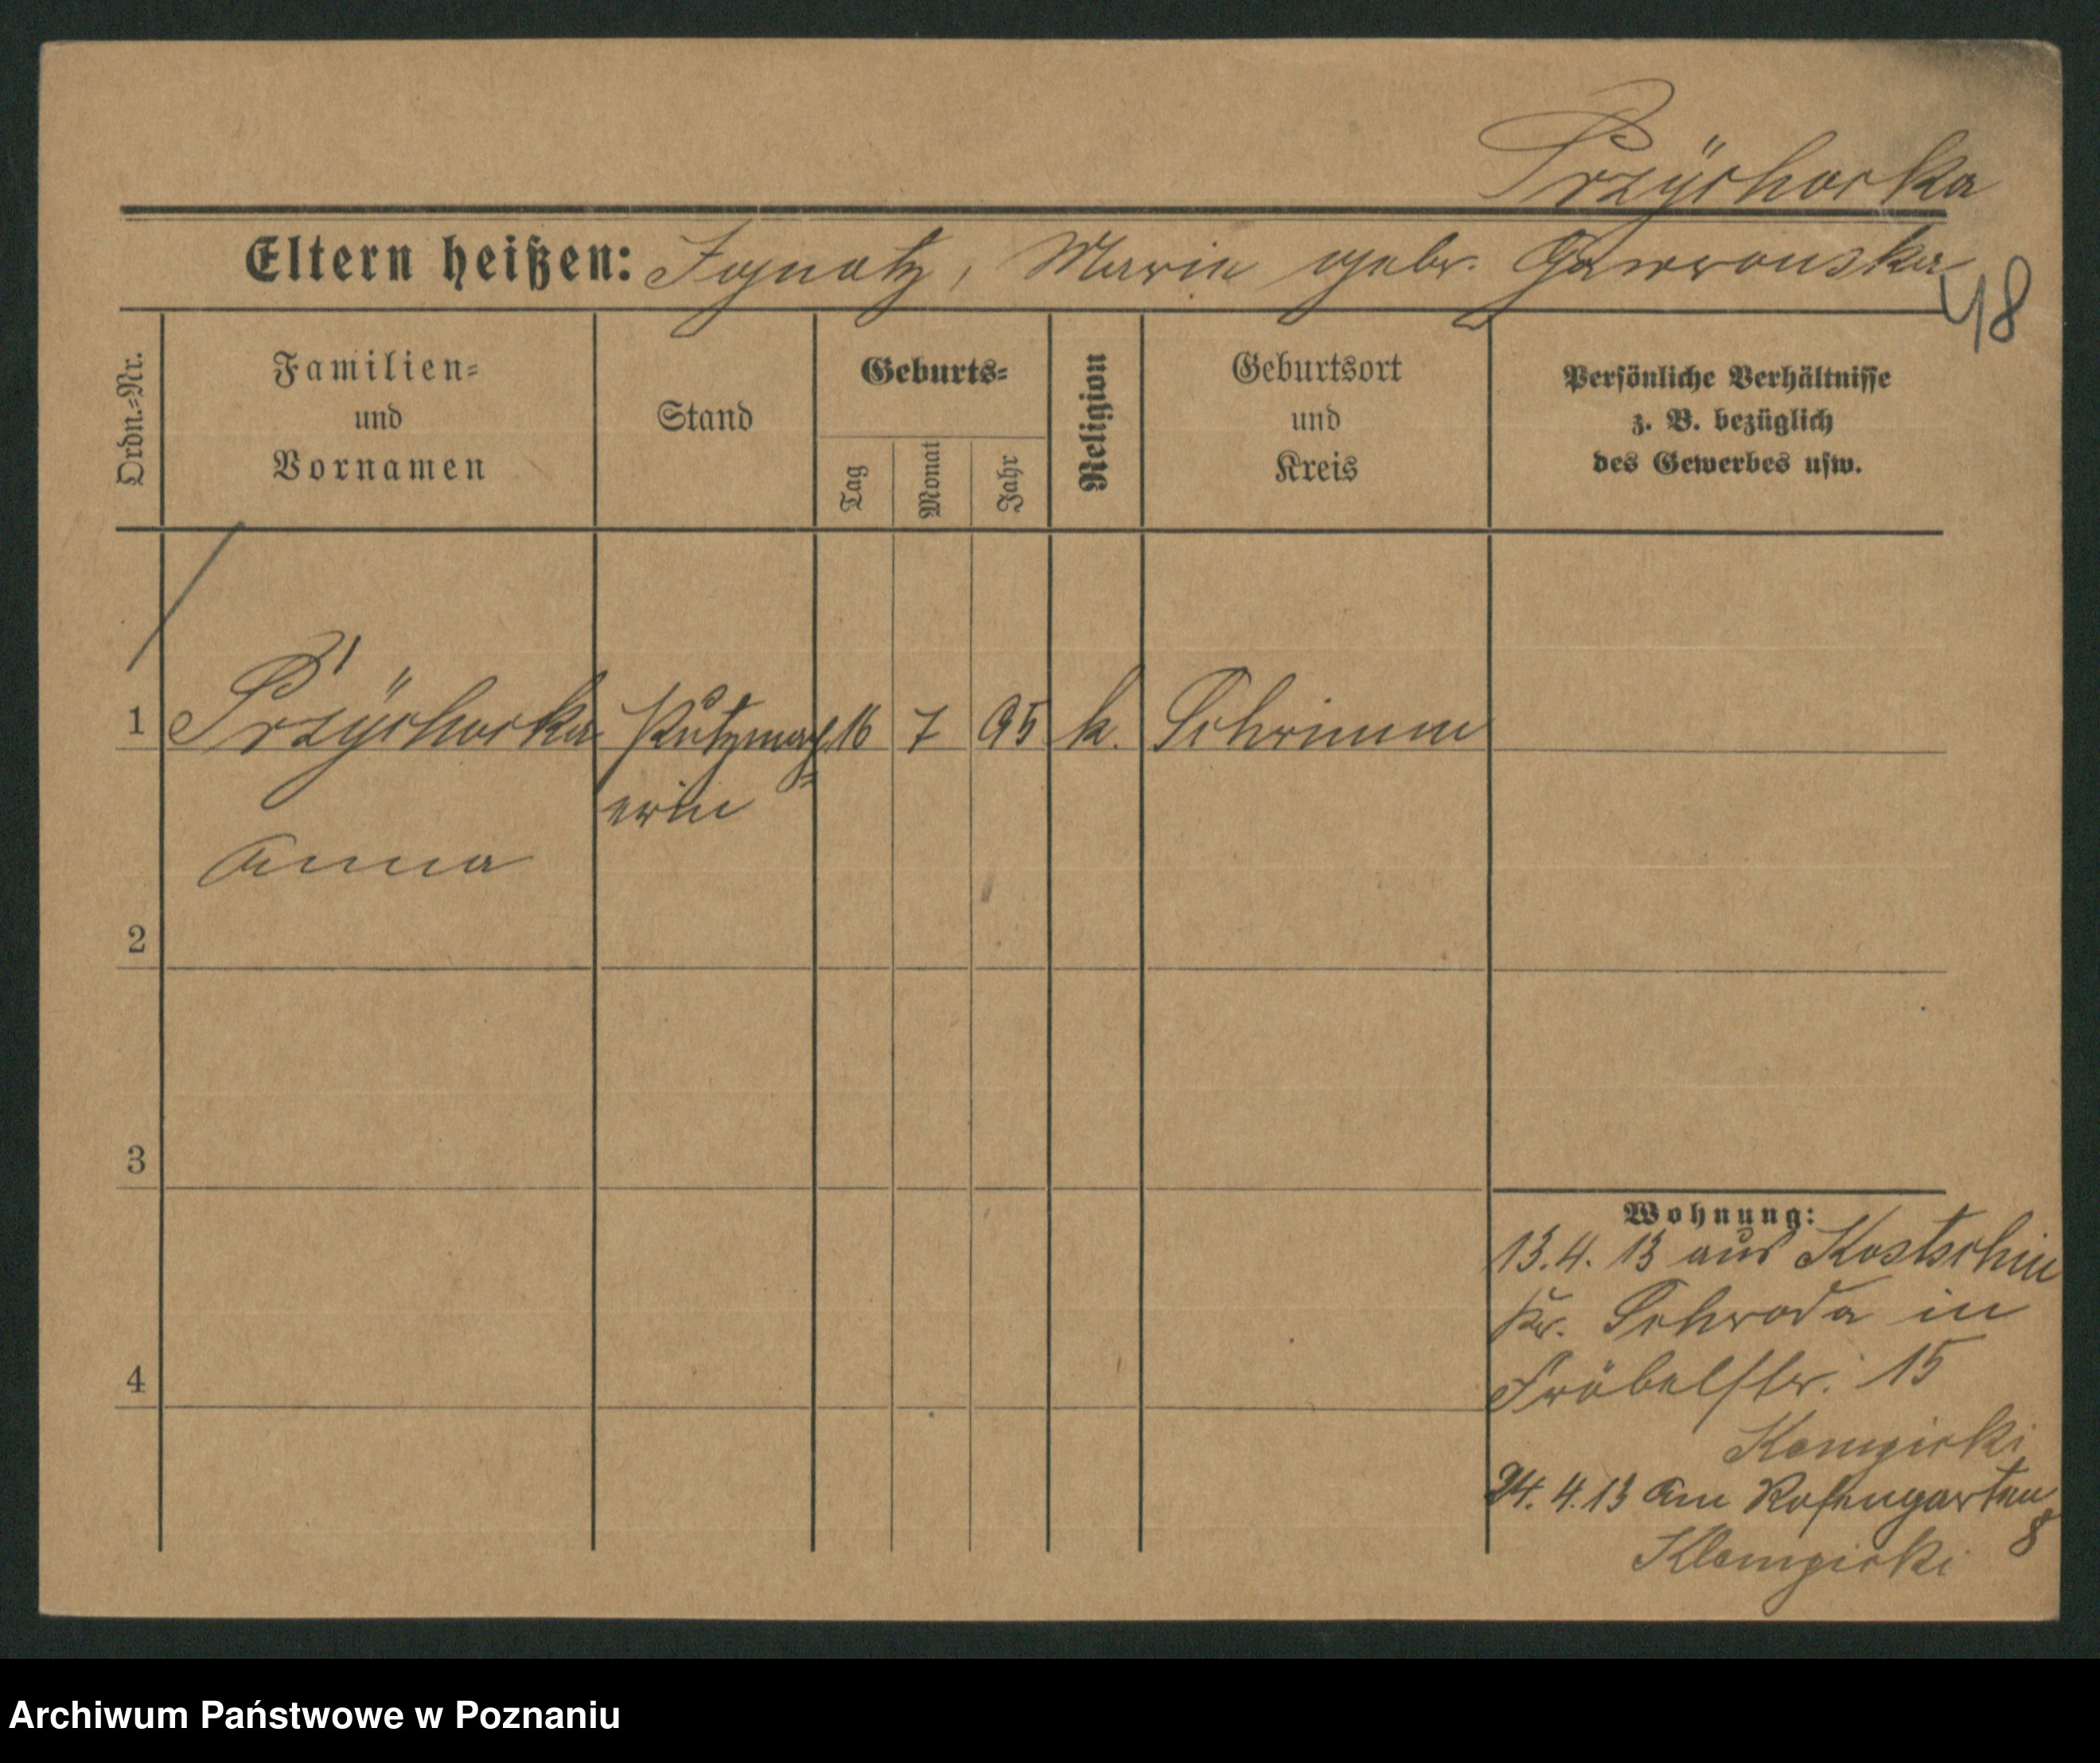 Przÿchocka
Eltern heißen: Ignatz, Marie gebr. Gawronska
48
Ordn.-Nr.
Familien-
und
Vornamen
Stand
Geburts-
Tag
Monat
Jahr
Religion
Geburtsort
und
Kreis
Persönliche Verhältnisse
z. B. bezüglich
des Gewerbes usw.
1 Przÿchocka Putzmach= 16 7 95 k. Schrimm
erin
Anna
2
3
4
Wohnung:
13.4.13 aus Kostschin
Kr. Schroda in
Fröbelstr. 15
24.4.13 Am Rosengarten
8
Archiwum Państwowe w Poznaniu